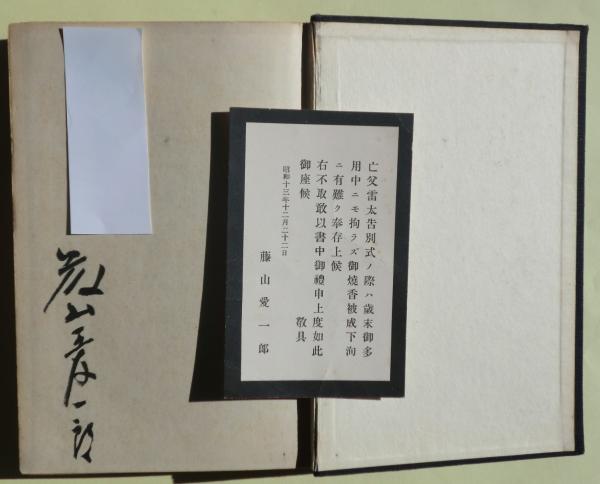 亡父雷太告別式ノ際ハ歳末御多
用中ニモ拘ラズ御燒香被成下洵
ニ有難ク奉存上候
右不取敢以書中御禮申上度如此
御座候
敬具
昭和十三年十二月二十二日
藤山愛一郎
藤山愛一郎